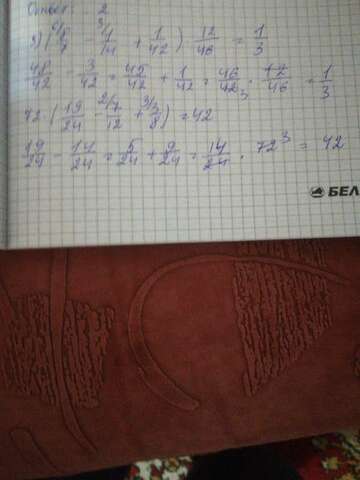 Ответ: 2
3) (⁶/8/7 - ³/1/14 + 1/42) · 12/46 = 1/3
48/42 - 3/42 = 45/42 + 1/42 = 46/42₃ · 12/46 = 1/3
72 · (19/24 - ²/7/12 + ³/3/8) = 42
19/24 - 14/24 = 5/24 + 9/24 = 14/24 · 72³ = 42
БЕЛ